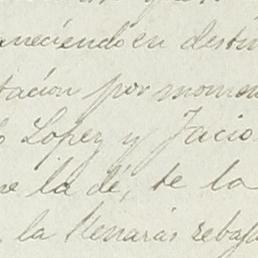 aneciendo en destin
tación por momen
Lopez y Jacio
la dé, te la
la llenarás rebaja